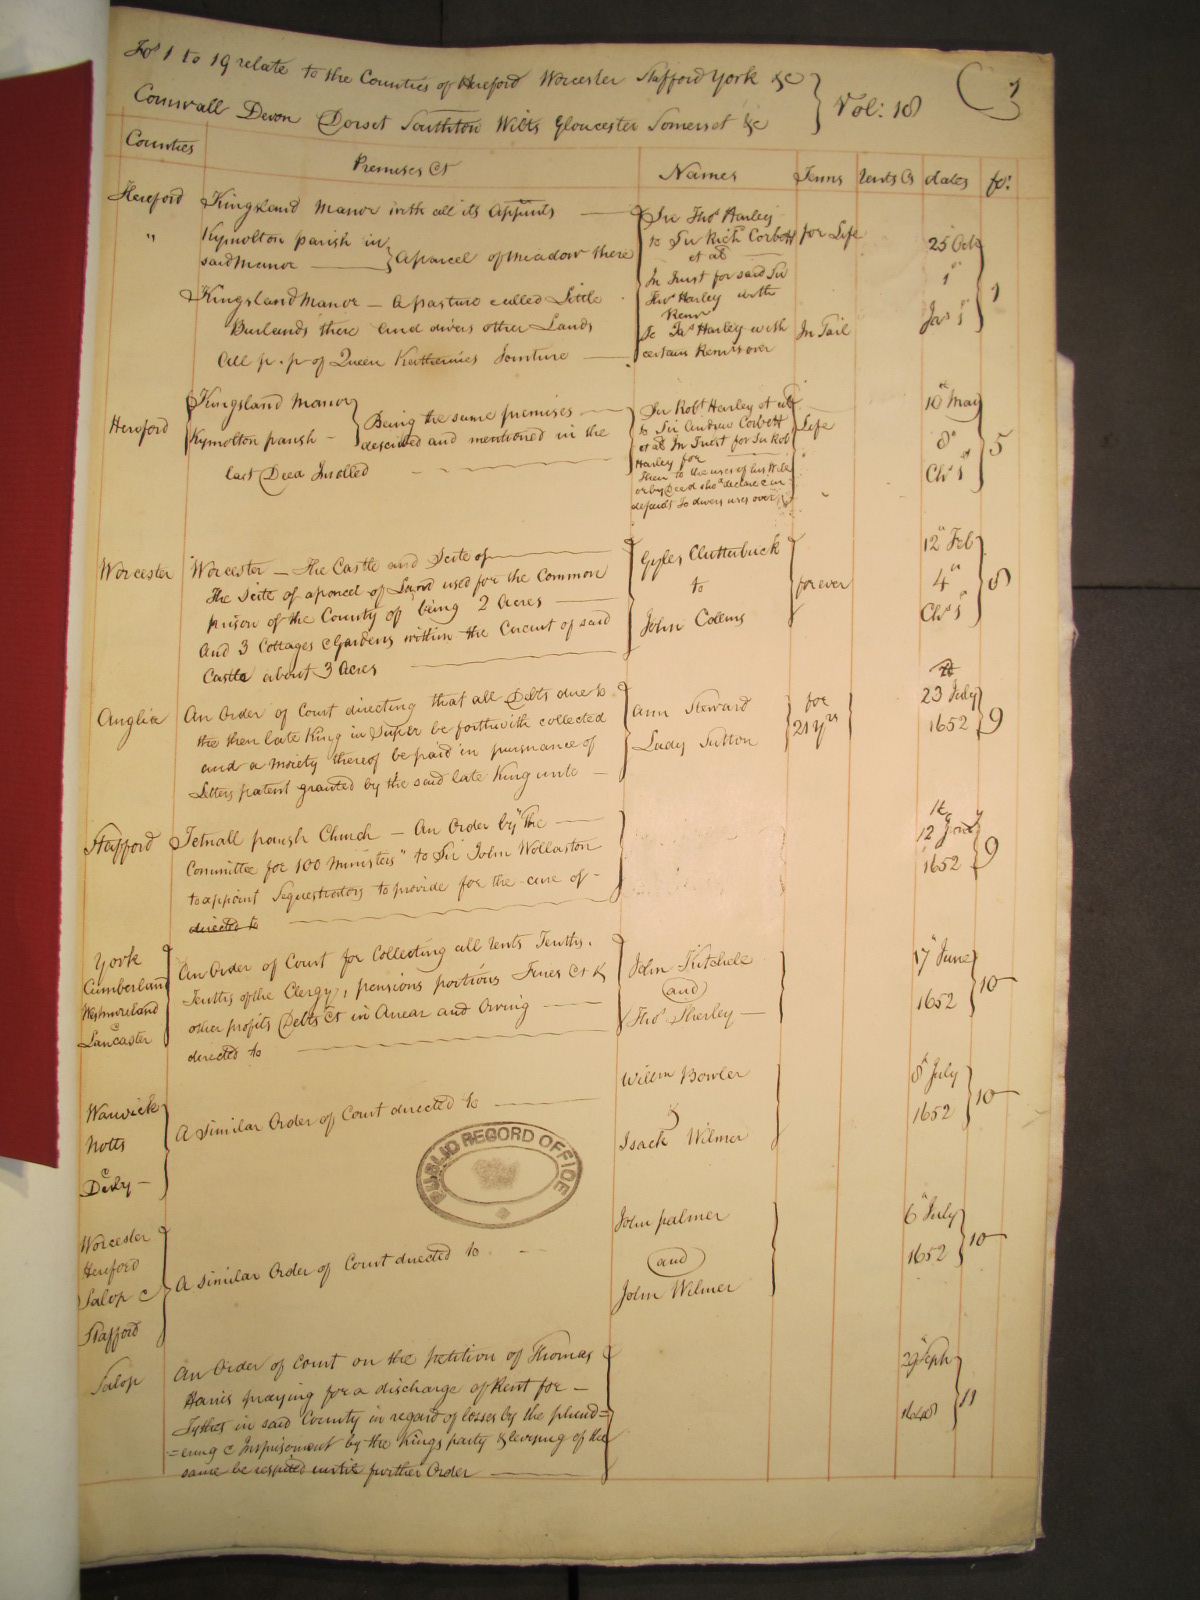 Fos 1 to 19 relate to the Counties of Hereford Worcester Stafford York &c
Cornwall Devon Dorset Southton Wilts Gloucester Somerset &c
Vol: 18
1
Counties
Premises &c
Names
Terms
Rents &c
dates
fo:
Hereford
Kingsland Manor with all its Appurts
"
Kymolton parish in
said Manor
A parcel of Meadow there
Kingsland Manor — A pasture called Little
Burlands there and divers other Lands
All p. p of Queen Katherines Jointure
Sir Thos Harley
to Sir Richd Corbett
et al
In Trust for said Sir
Thos Harley with
Remr
To Jas Harley with
certain Remrs over
for Life
In Tail
25 Octr
1st
Jas 1st
1
Hereford
Kingsland Manor
Kymolton parish -
Being the same premises
described and mentioned in the
last Deed Inrolled
Sir Robt Harley et al
to Sir Andrew Corbett
et al In Trust for Sir Rob
Harley for
then to the uses of his Will
or by Deed shod declare & in
default To divers uses over
Life
10th May
8th
Chs 1st
5
Worcester
Worcester — The Castle and Scite of
The Scite of a parcel of Land used for the Common
prison of the County of being 2 Acres
And 3 Cottages & Gardens within the Circuit of said
Castle about 3 Acres
Gyles Clutterbuck
to
John Collins
for ever
12th Feb
4th
Chs 1st
8
Anglia
An Order of Court directing that all Debts due to
the then late King in Super be forthwith collected
and a moiety thereof be paid in pursuance of
Letters patent granted by the said late King unto
Ann Steward
Lady Sutton
for
21 yrs
23 July
1652
9
Stafford
Tetnall parish Church — An Order by "the
Committee for 100 Ministers" to Sir John Wollaston
to appoint Sequestrators to provide for the cure of
directed to
12
1652
9
York
Cumberland
Westmoreland
&
Lancaster
An Order of Court for Collecting all rents Tenths.
Tenths of the Clergy, pensions portions Fines &c &
other profits Debts &c in Arrear and Owing
directed to
John Kitchele
and
Thos Sherley
17th June
1652
10
Warwick
Notts
&
Derby
A similar Order of Court directed to
Willm Bowler
&
Isack Wilmer
8th July
1652
10
PUBLIC RECORD OFFICE
Worcester
Hereford
Salop &
Stafford
A similar Order of Court directed to
John palmer
and
John Wilmer
6th July
1652
10
Salop
An Order of Court on the petition of Thomas
Harris praying for a discharge of Rent for
Tythes in said County in regard of losses by the plund=
=ering & Imprisonment by the Kings party & levying of the
same be respited until further Order
29 Septr
1648
11